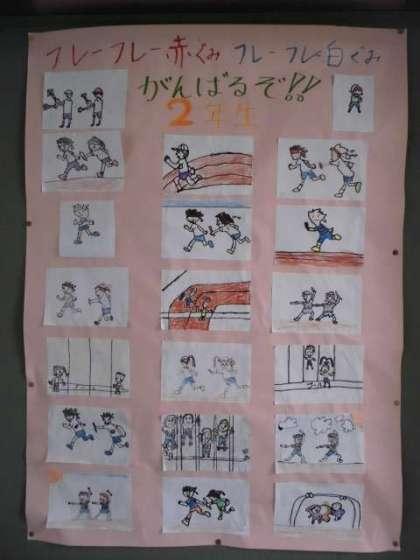 フレーフレー赤ぐみ フレーフレー白ぐみ
がんばるぞ!!
2年生